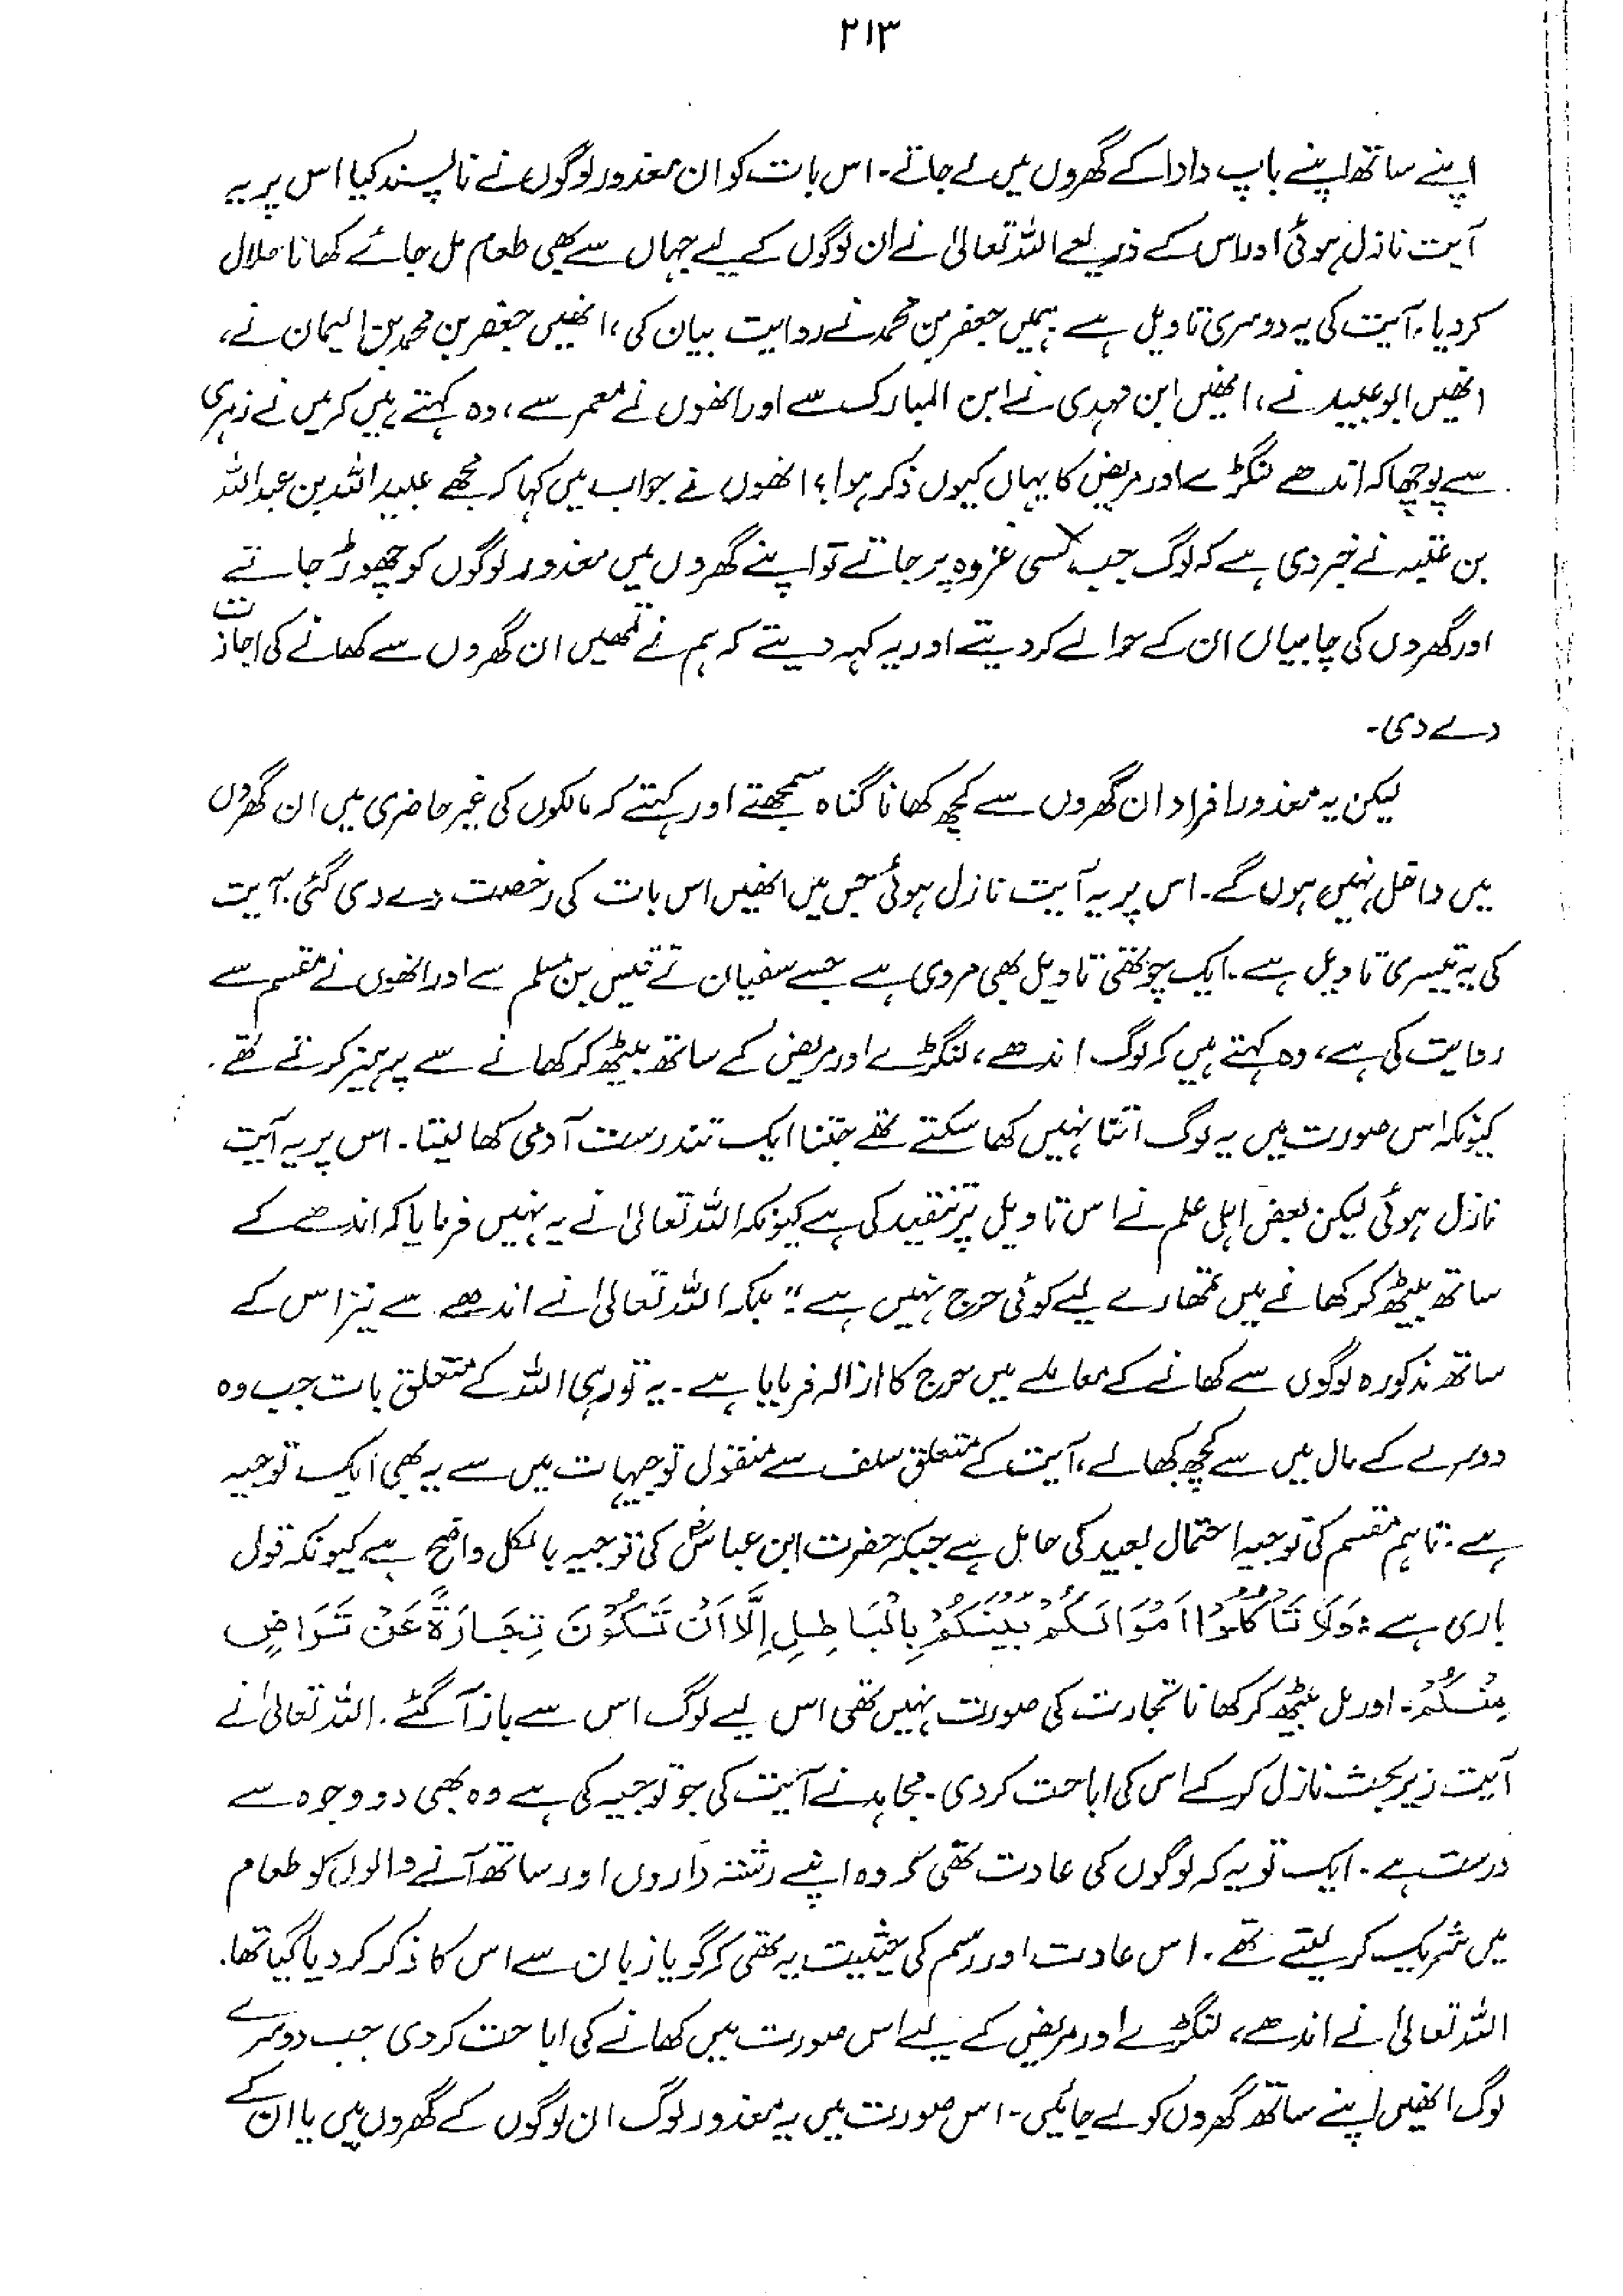 ۲۱۳
اپنے ساتھ اپنے باپ دادا کے گھروں میں لے جاتے۔ اس بات کو ان معذور لوگوں نے ناپسند کیا اس پر یہ
آیت نازل ہوئی اور اس کے ذریعے اللہ تعالیٰ نے ان لوگوں کے لیے جہاں سے بھی طعام مل جائے کھانا حلال
کر دیا۔ آیت کی یہ دوسری تاویل ہے۔ ہمیں جعفر بن محمد نے روایت بیان کی، انھیں جعفر بن محمد بن الیمان نے،
انھیں ابو عبید نے، انھیں ابن مہدی نے ابن المبارک سے اور انھوں نے معمر سے، وہ کہتے ہیں کہ میں نے زہری
سے پوچھا کہ اندھے لنگڑے اور مریض کا یہاں کیوں ذکر ہوا؟ انھوں نے جواب میں کہا کہ مجھے عبید اللہ بن عبداللہ
بن عتبہ نے خبر دی ہے کہ لوگ جب کسی غزوہ پر جاتے تو اپنے گھروں میں معذور لوگوں کو چھوڑ جاتے
اور گھروں کی چابیاں ان کے حوالے کر دیتے اور یہ کہہ دیتے کہ ہم نے تمھیں ان گھروں سے کھانے کی اجازت
دے دی۔
لیکن یہ معذور افراد ان گھروں سے کچھ کھانا گناہ سمجھتے اور کہتے کہ مالکوں کی غیر حاضری میں ان گھروں
میں داخل نہیں ہوں گے۔ اس پر یہ آیت نازل ہوئی جس میں انھیں اس بات کی رخصت دے دی گئی۔ آیت
کی یہ تیسری تاویل ہے۔ ایک چوتھی تاویل بھی مروی ہے جسے سفیان نے قیس بن مسلم سے اور انھوں نے مقسم سے
روایت کی ہے، وہ کہتے ہیں کہ لوگ اندھے، لنگڑے اور مریض کے ساتھ بیٹھ کر کھانے سے پرہیز کرتے تھے۔
کیونکہ اس صورت میں یہ لوگ اتنا نہیں کھا سکتے تھے جتنا ایک تندرست آدمی کھا لیتا۔ اس پر یہ آیت
نازل ہوئی لیکن بعض اہل علم نے اس تاویل پر تنقید کی ہے کیونکہ اللہ تعالیٰ نے یہ نہیں فرمایا کہ اندھے کے
ساتھ بیٹھ کر کھانے میں تمھارے لیے کوئی حرج نہیں ہے" بلکہ اللہ تعالیٰ نے اندھے سے نیز اس کے
ساتھ مذکورہ لوگوں سے کھانے کے معاملے میں حرج کا ازالہ فرمایا ہے۔ یہ تو رہی اللہ کے متعلق بات جب وہ
دوسرے کے مال میں سے کچھ کھالے، آیت کے متعلق سلف سے منقول توجیہات میں سے یہ بھی ایک توجیہ
ہے۔ تاہم مقسم کی توجیہ احتمال بعید کی حامل ہے جبکہ حضرت ابن عباسؓ کی توجیہ بالکل واضح ہے کیونکہ قول
باری ہے: وَلَا تَأْكُلُوْا اَمْوَالَكُمْ بَيْنَكُمْ بِالْبَاطِلِ اِلَّا اَنْ تَكُوْنَ تِجَارَةً عَنْ تَرَاضٍ
مِنْكُمْ۔ اور مل بیٹھ کر کھانا تجارت کی صورت نہیں تھی اس لیے لوگ اس سے باز آگئے۔ اللہ تعالیٰ نے
آیت زیر بحث نازل کرکے اس کی اباحت کر دی۔ مجاہد نے آیت کی جو توجیہ کی ہے وہ بھی دو وجوہ سے
درست ہے۔ ایک تو یہ کہ لوگوں کی عادت تھی کہ وہ اپنے رشتہ داروں اور ساتھ آنے والوں کو طعام
میں شریک کر لیتے تھے۔ اس عادت اور رسم کی حیثیت یہ تھی کہ گویا زبان سے اس کا ذکر کر دیا گیا تھا۔
اللہ تعالیٰ نے اندھے، لنگڑے اور مریض کے لیے اس صورت میں کھانے کی اباحت کر دی جب دوسرے
لوگ انھیں اپنے ساتھ گھروں کو لے جائیں۔ اس صورت میں یہ معذور لوگ ان لوگوں کے گھروں میں یا ان کے